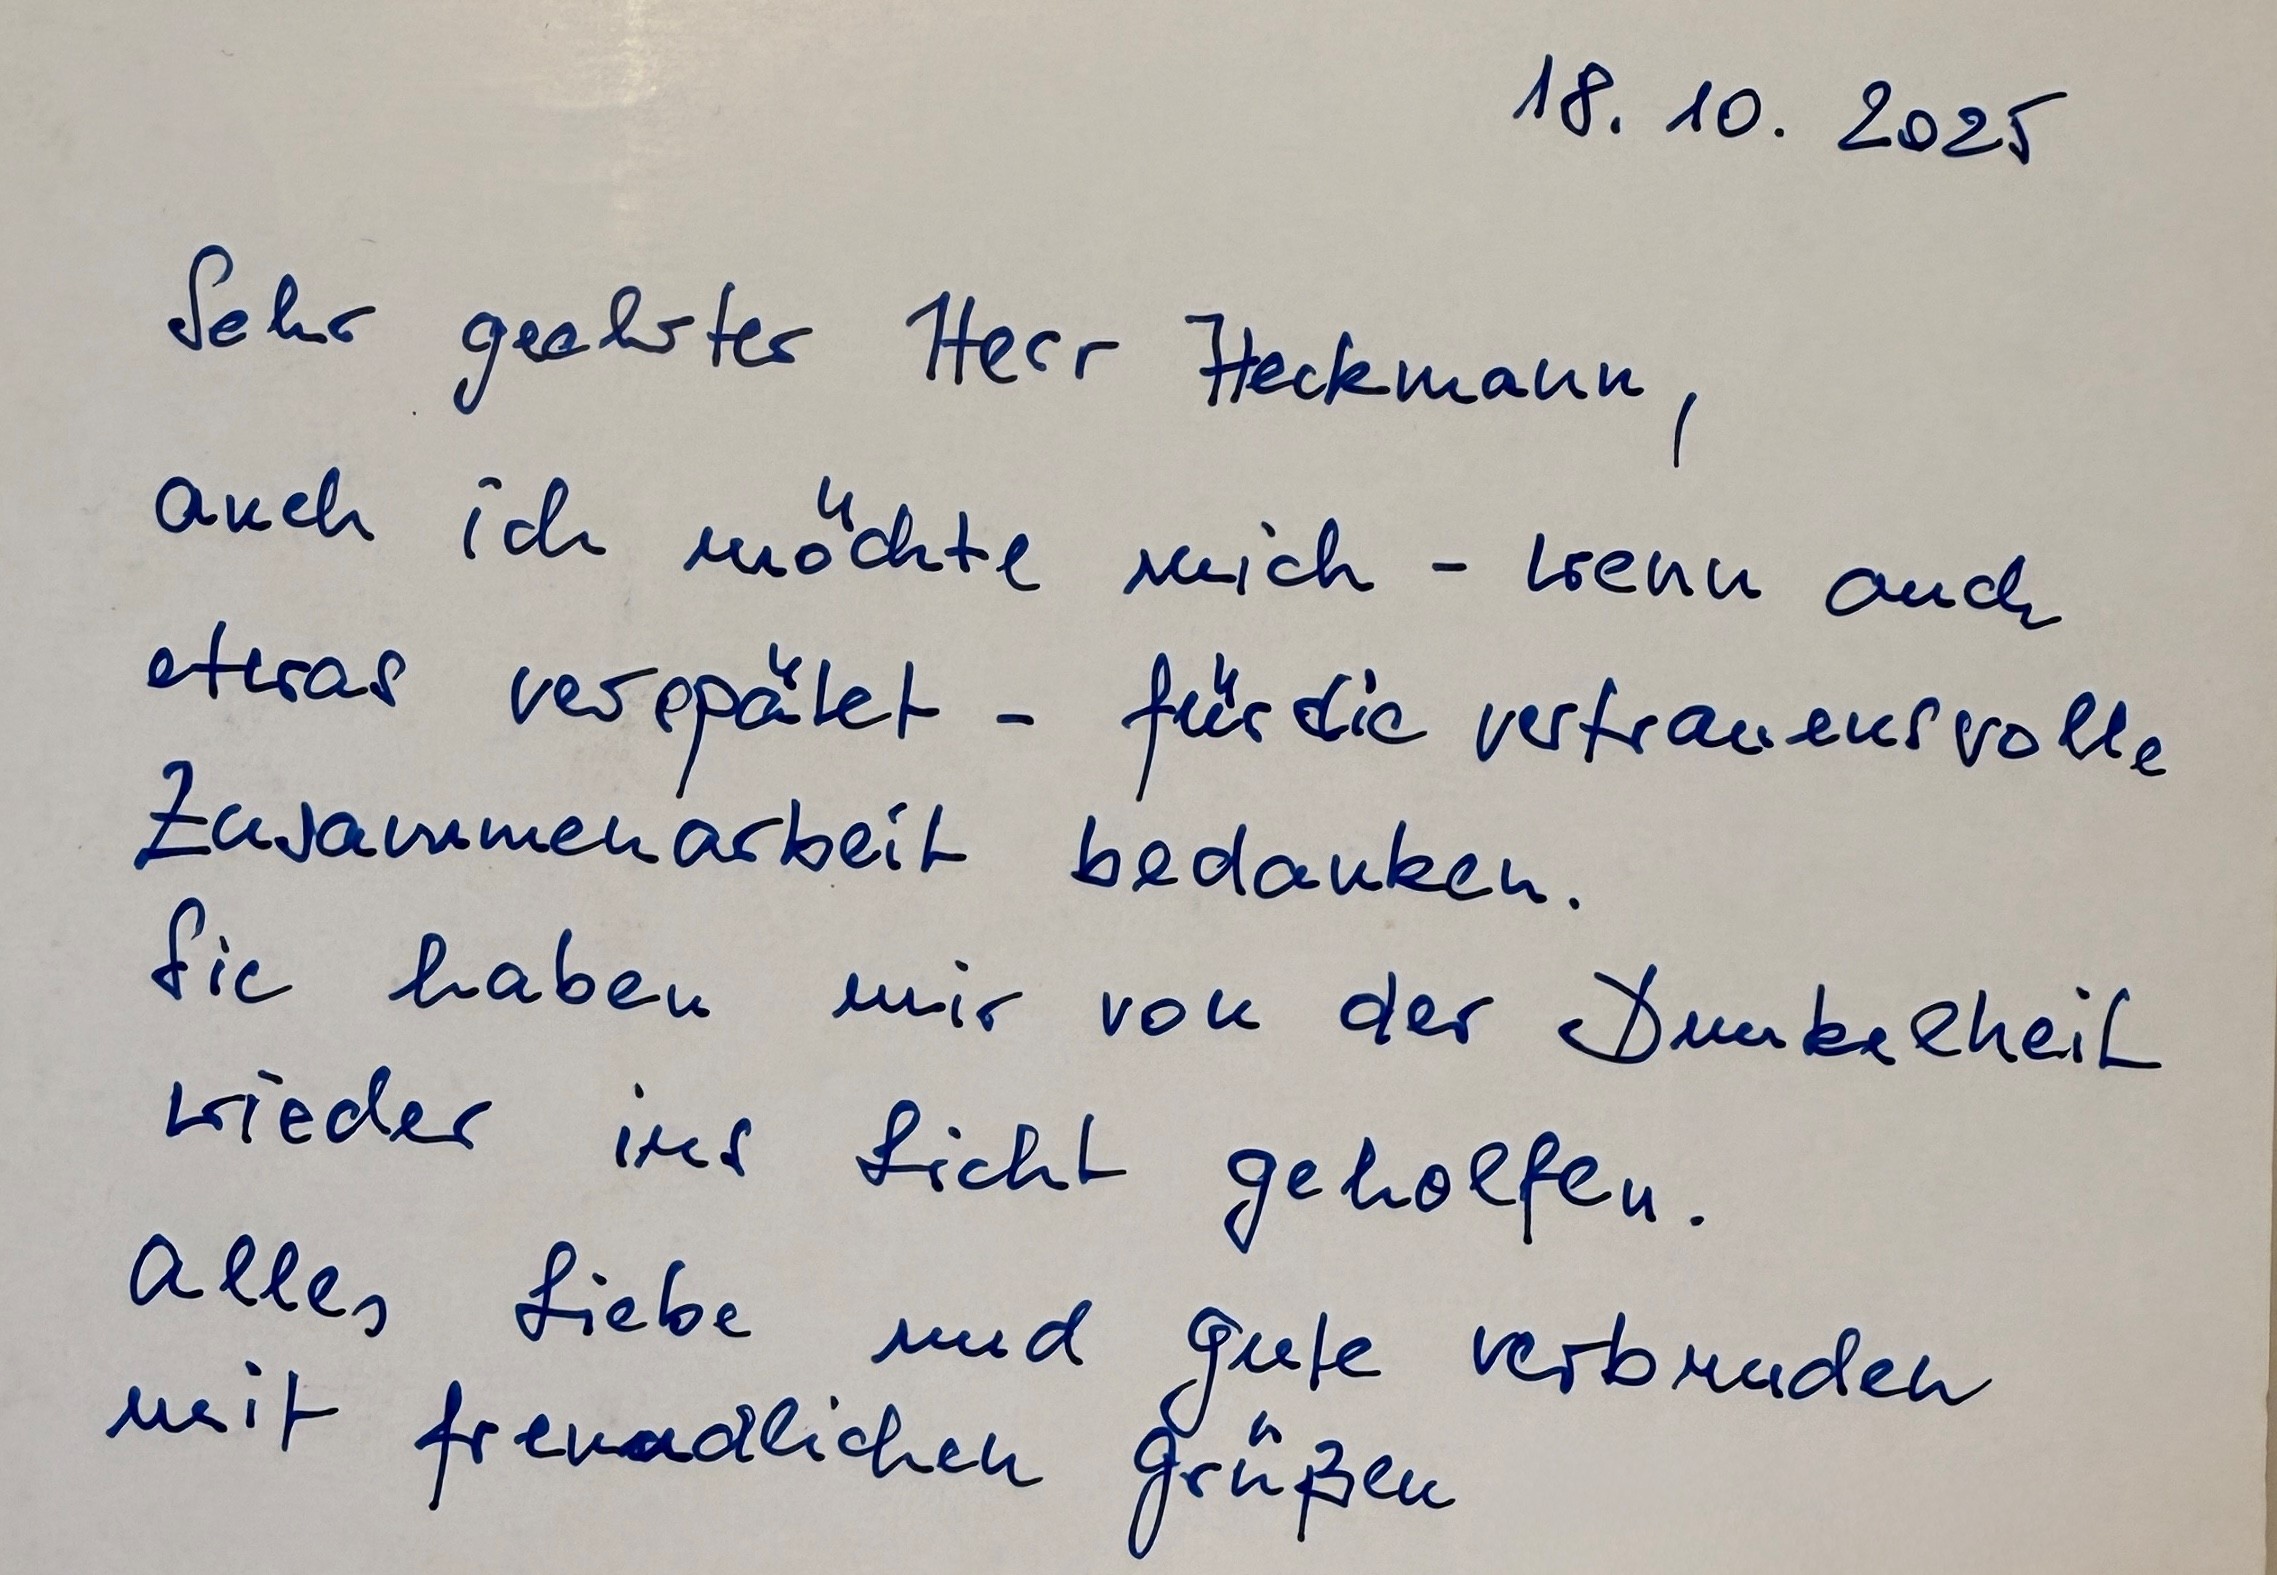 18. 10. 2025
Sehr geehrter Herr Heckmann,
auch ich möchte mich - wenn auch
etwas verspätet - für die vertrauensvolle
Zusammenarbeit bedanken.
Sie haben mir von der Dunkelheit
wieder ins Licht geholfen.
Alles Liebe und Gute verbunden
mit freundlichen Grüßen